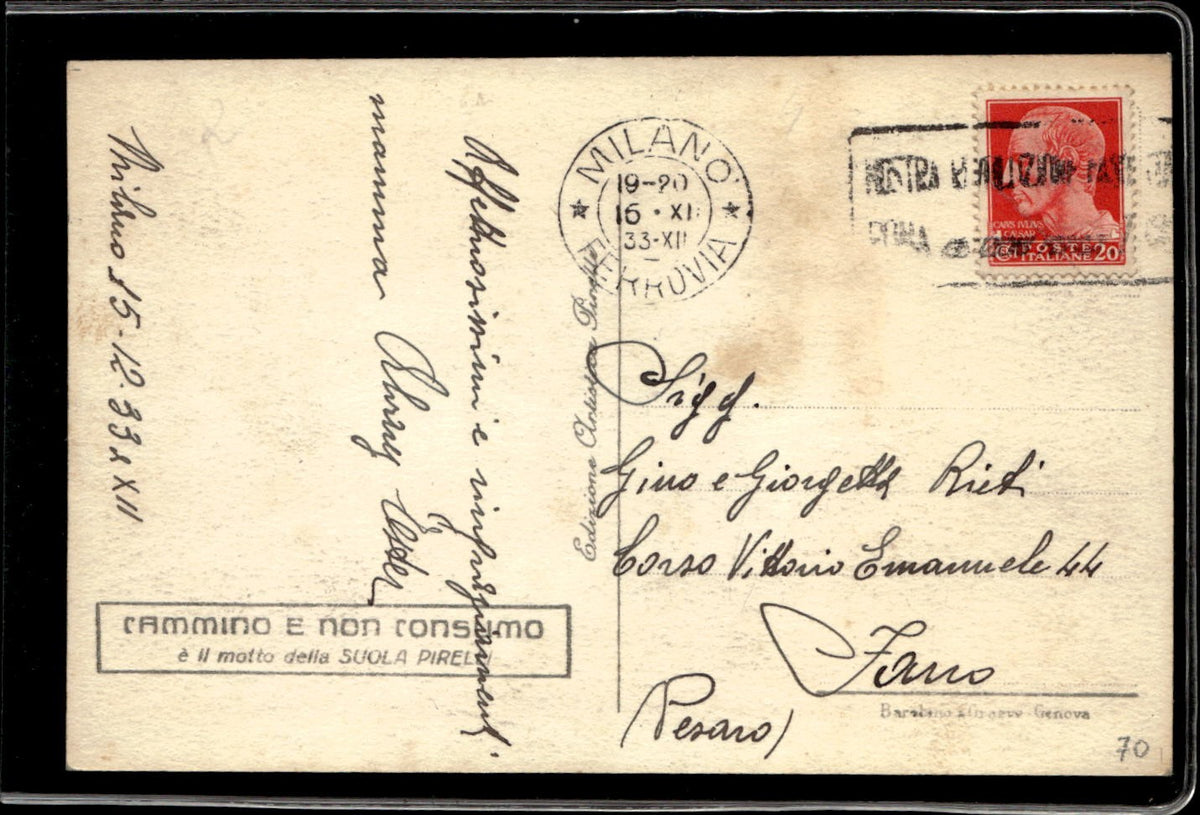 Milano 15-12-33 XII
Affettuosissimi e
mamma
MILANO
19-20
16 · XI
33-XII
FERROVIA
MOSTRA
ROMA
CAIVS IVLIVS
CAESAR
POSTE
ITALIANE 20
Edizione Artistica Pirelli
Sigg.
Gino e Giorgetta Rieti
Corso Vittorio Emanuele 44
Fano
(Pesaro)
CAMMINO E NON CONSUMO
è il motto della SUOLA PIRELLI
Barabino & Graeve - Genova
70